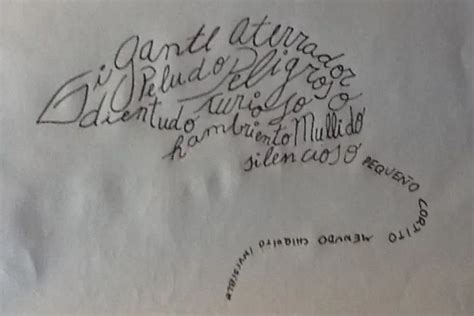 Gigante aterrador
Peludo Peligroso
dientudo furioso
hambriento Mullido
silencioso
PEQUEÑO CORTITO MENUDO CHIQUITO INVISIBLE